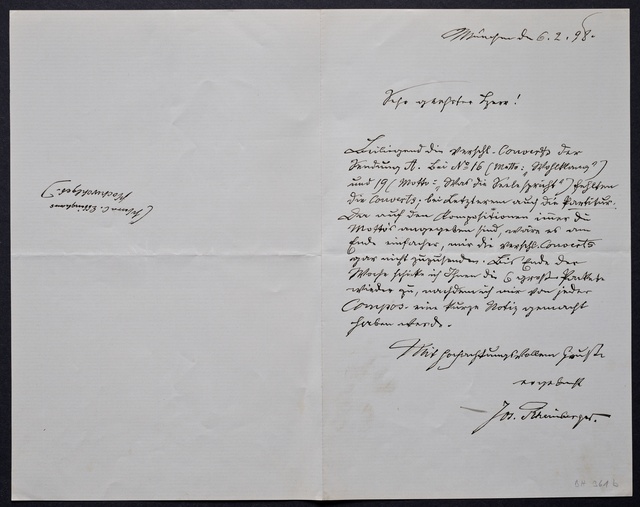 München den 6.2.98.
Sehr geehrter Herr!
Beiliegend die verschl. Couverts der
Sendung A. Bei No 16 (Motto: „Wohlklang")
und 19 (Motto: „Was die Seele spricht") fehlten
die Couverts; bei Letzterem auch die Partitur.
Da auf den Compositionen immer die
Mottos angegeben sind, wäre es am
Ende einfacher, mir die verschl. Couverts
gar nicht zuzusenden. Bis Ende der
Woche schicke ich Ihnen die 6 große Packete
wieder zu, nachdem ich mir von jeder
Compos. eine kurze Notiz gemacht
haben werde.
Mit hochachtungsvollem Gruße
ergebenst
Jos. Rheinberger.
Hochwohlgeb.)